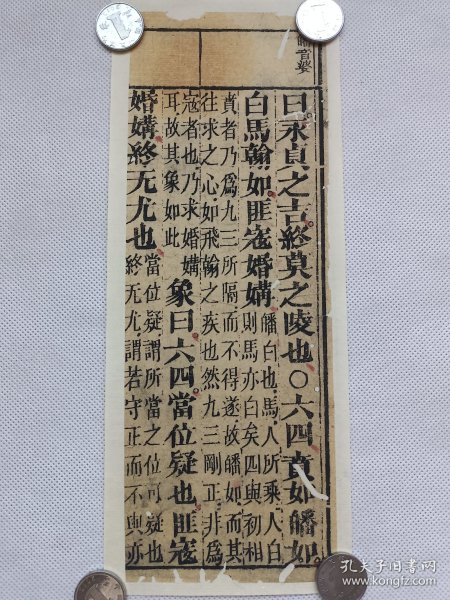 皤音婆
曰永貞之吉終莫之陵也○六四賁如皤如
白馬翰如匪寇婚媾
皤白也馬人所乘人白
則馬亦白矣四與初相
賁者乃爲九三所隔而不得遂故皤如而其
往求之心如飛翰之疾也然九三剛正非爲
寇者也乃求婚媾
耳故其象如此
象曰六四當位疑也匪寇
婚媾終无尤也
當位疑謂所當之位可疑也
終无尤謂若守正而不與亦
孔夫子旧书网
http://www.kongfz.com/